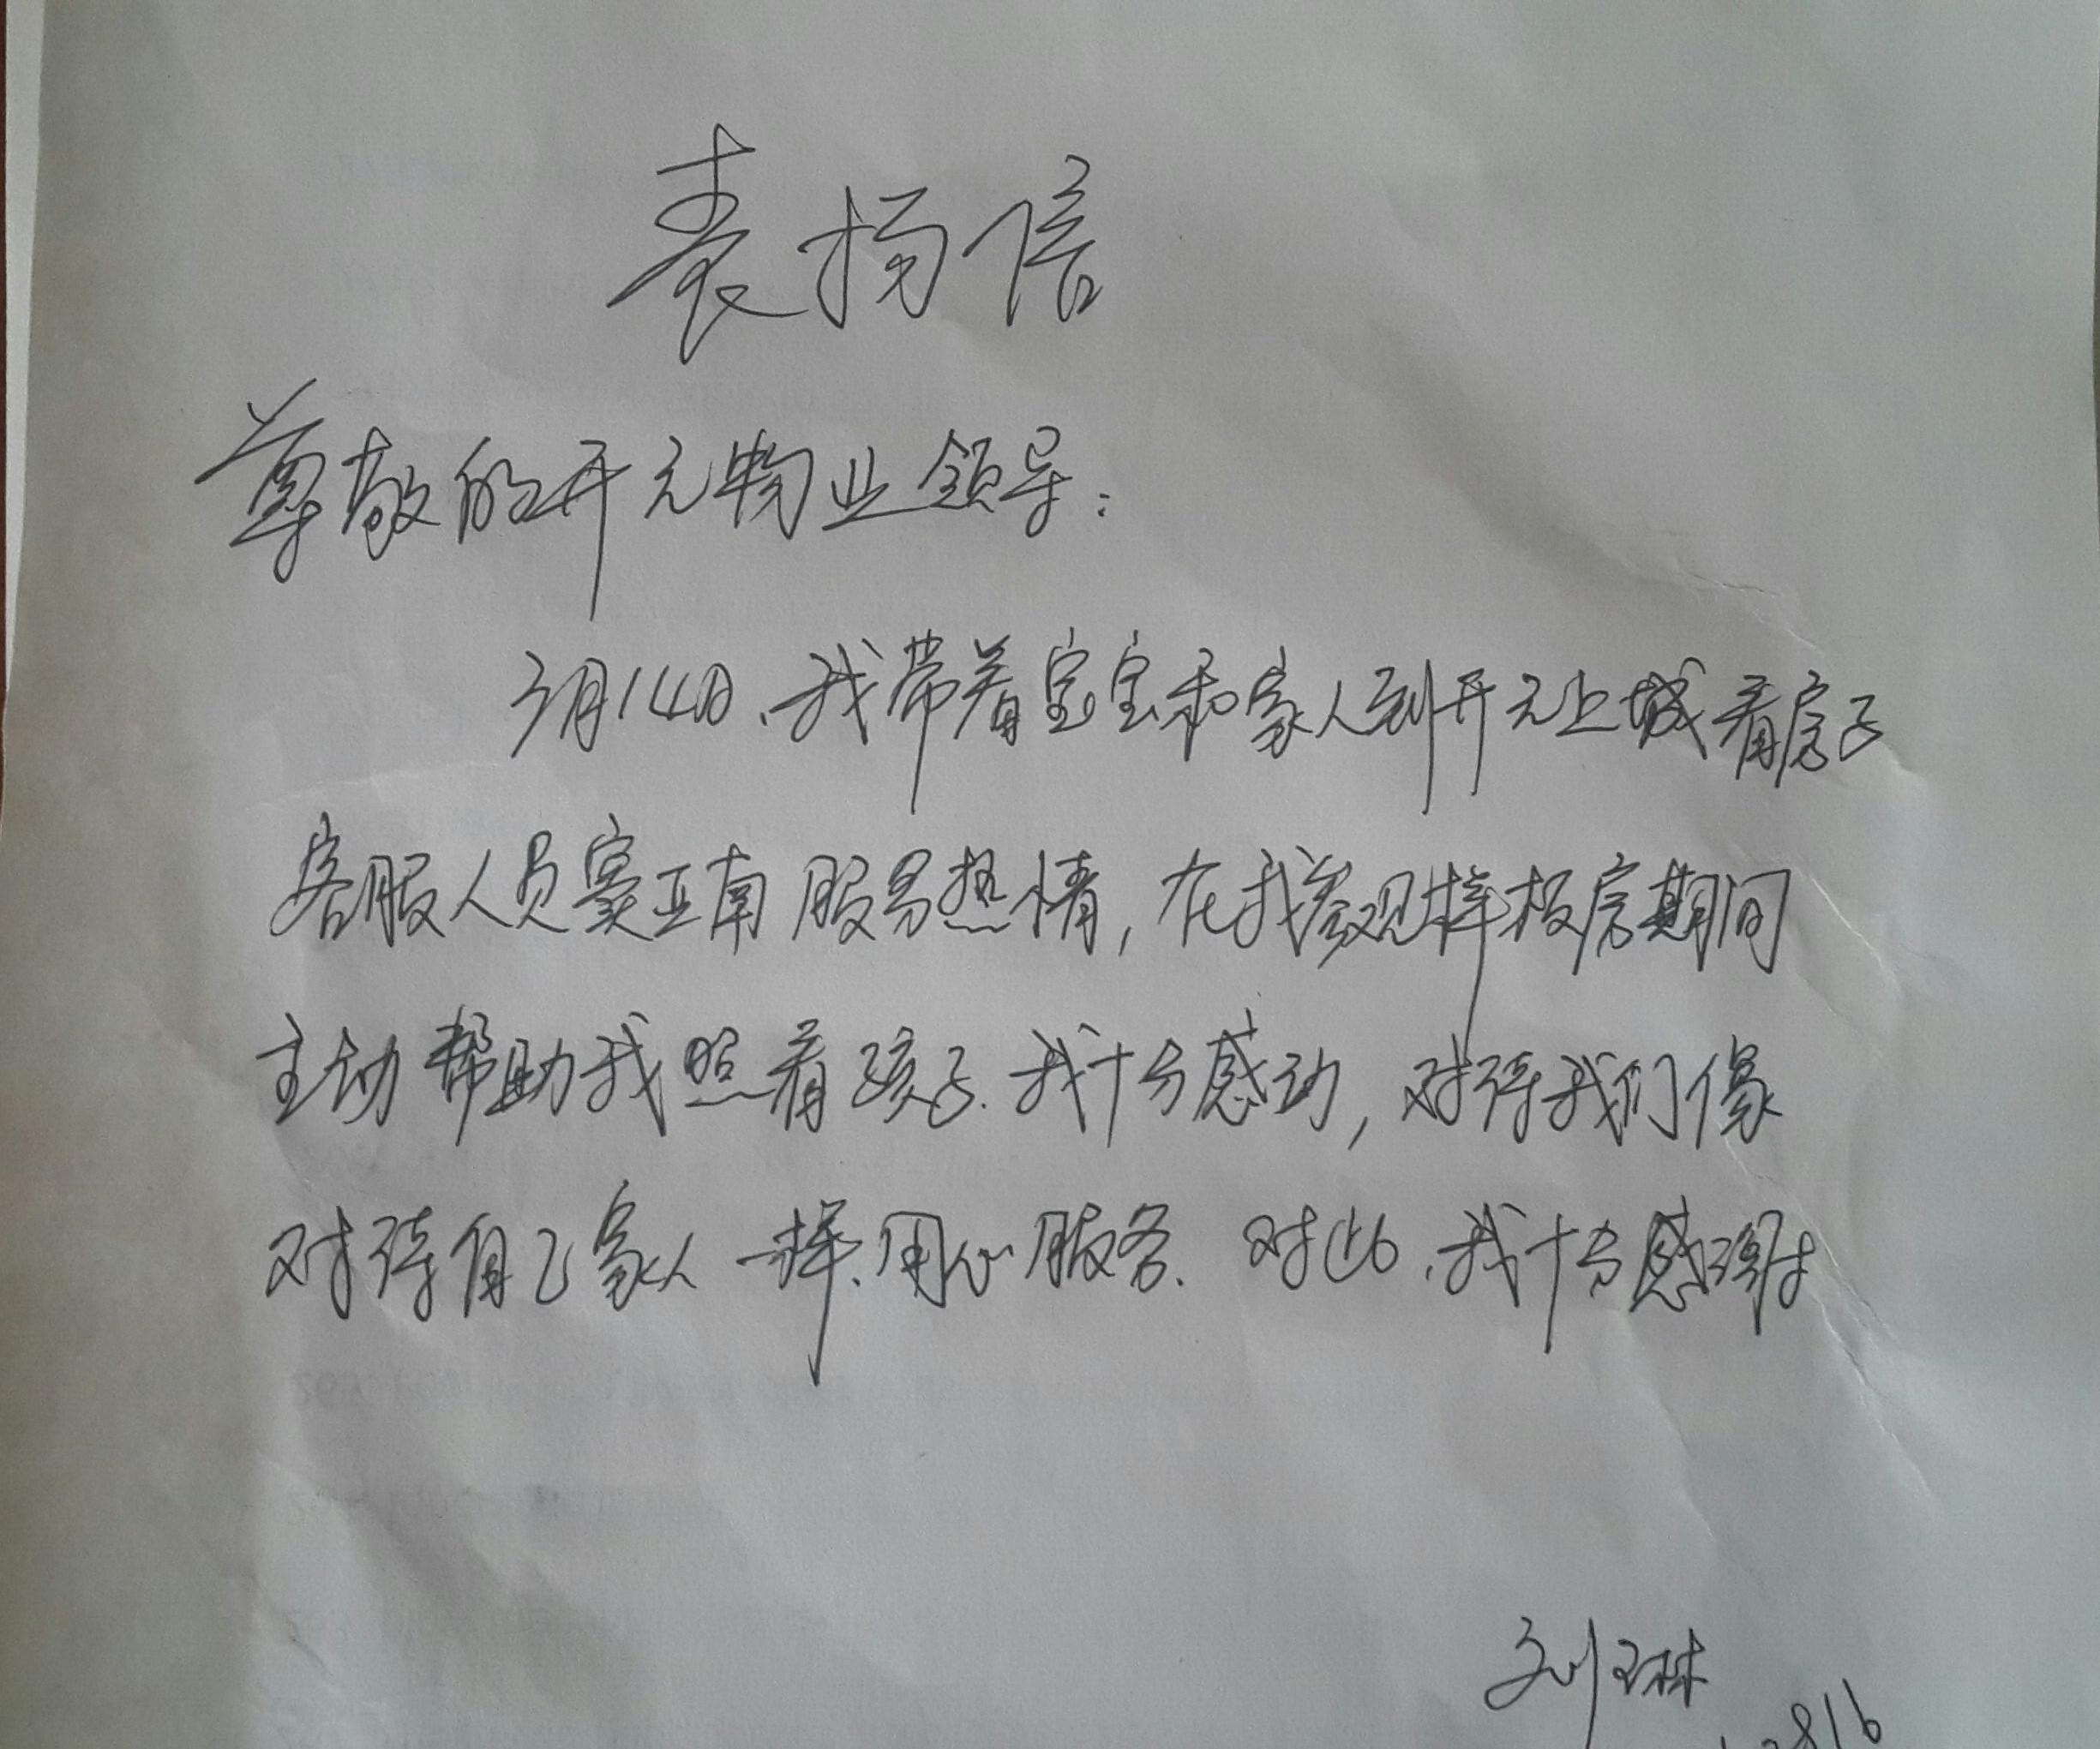 表扬信
尊敬的开元物业领导：
3月14日、我带着宝宝和家人到开元上城看房子
客服人员窦亚南服务热情，在我参观样板房期间
主动帮助我照看孩子.我十分感动，对待我们像
对待自己家人一样、用心服务.对此、我十分感谢
刘琳